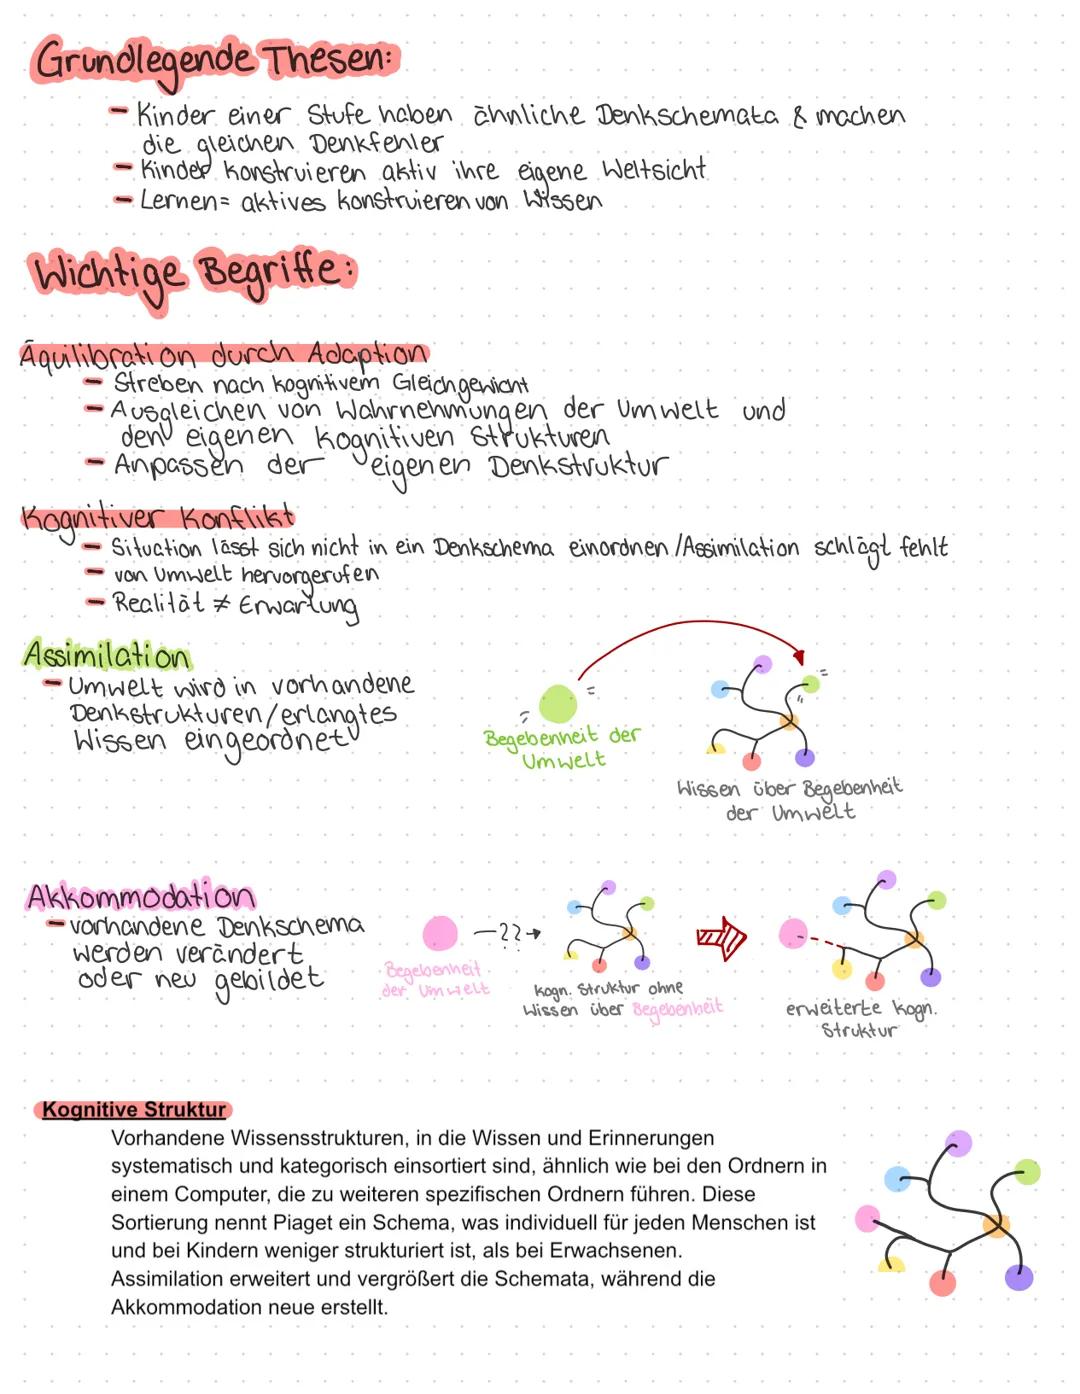 Grundlegende Thesen:
- Kinder einer Stufe haben ähnliche Denkschemata & machen
die gleichen Denkfehler
- Kinder konstruieren aktiv ihre eigene Weltsicht
- Lernen = aktives konstruieren von Wissen
Wichtige Begriffe:
Äquilibration durch Adaption
- Streben nach kognitivem Gleichgewicht
- Ausgleichen von Wahrnehmungen der Umwelt und
den eigenen kognitiven Strukturen
- Anpassen der eigenen Denkstruktur
Kognitiver Konflikt
- Situation lässt sich nicht in ein Denkschema einordnen /Assimilation schlägt fehlt
- von Umwelt hervorgerufen
- Realität ≠ Erwartung
Assimilation
- Umwelt wird in vorhandene
Denkstrukturen/erlangtes
Wissen eingeordnet
Begebenheit der
Umwelt
Wissen über Begebenheit
der Umwelt
Akkommodation
- vorhandene Denkschema
werden verändert
oder neu gebildet
Begebenheit
der Umwelt
-??→
kogn. Struktur ohne
Wissen über Begebenheit
erweiterte kogn.
Struktur
Kognitive Struktur
Vorhandene Wissensstrukturen, in die Wissen und Erinnerungen
systematisch und kategorisch einsortiert sind, ähnlich wie bei den Ordnern in
einem Computer, die zu weiteren spezifischen Ordnern führen. Diese
Sortierung nennt Piaget ein Schema, was individuell für jeden Menschen ist
und bei Kindern weniger strukturiert ist, als bei Erwachsenen.
Assimilation erweitert und vergrößert die Schemata, während die
Akkommodation neue erstellt.